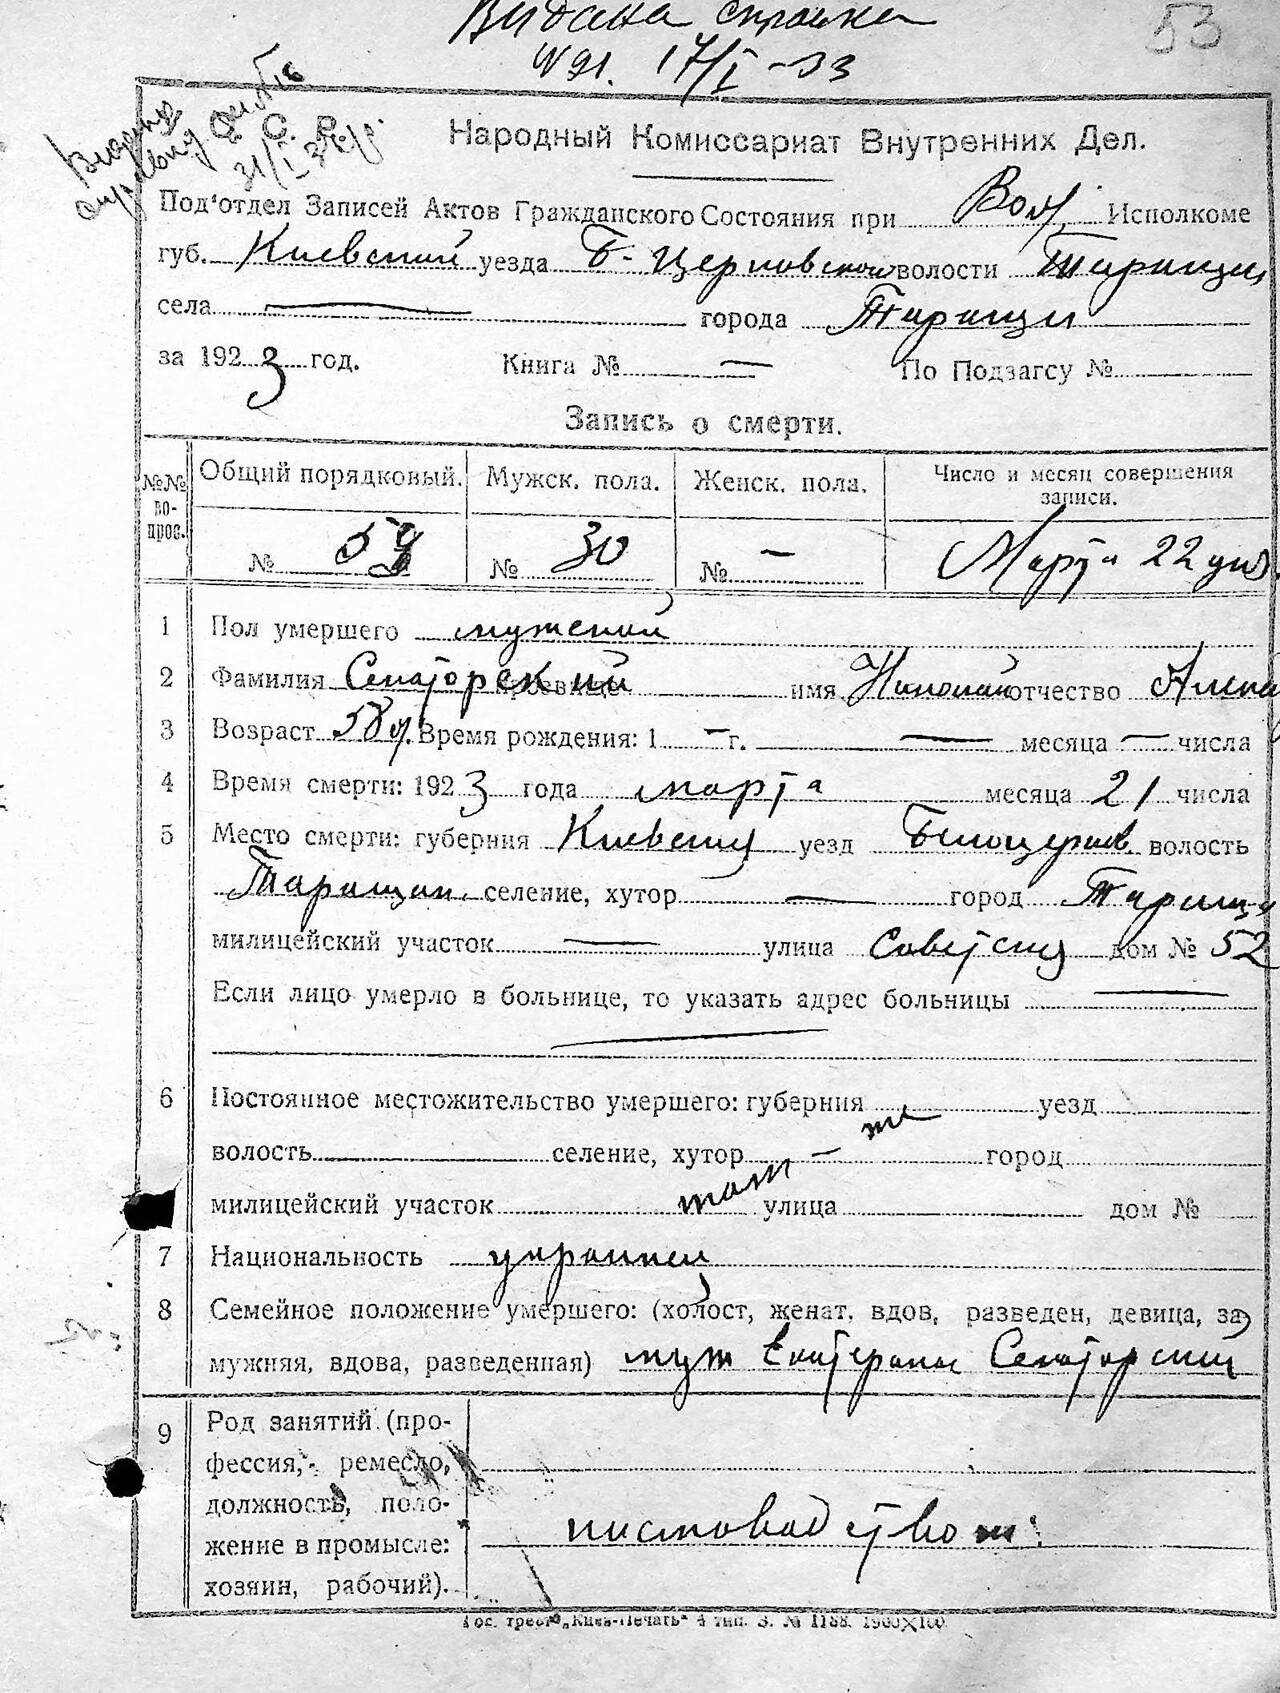 Видана справка
N 91. 17/I -33
53
С. С. Р.
31/I
Народный Комиссариат Внутренних Дел.
Под'отдел Записей Актов Гражданского Состояния при Вол. Исполкоме
губ. Киевский уезда Б-Церковской волости Таращан.
села — города Таращи
за 1923 год. Книга № — По Подзагсу №
Запись о смерти.
№№ вопрос. Общий порядковый. Мужск. пола. Женск. пола. Число и месяц совершения записи.
№ 59 № 30 № — Марта 22 дня
1 Пол умершего мужский
2 Фамилия Сенаторский прозвище имя Николай отчество
3 Возраст 58 л. Время рождения: 1 — г. — месяца — числа
4 Время смерти: 1923 года марта месяца 21 числа
5 Место смерти: губерния Киевская уезд Белоцерков. волость
Таращан. селение, хутор — город Тараща
милицейский участок — улица Советская дом № 52
Если лицо умерло в больнице, то указать адрес больницы —
—
6 Постоянное местожительство умершего: губерния же уезд
волость селение, хутор — город
милицейский участок там улица дом №
7 Национальность украинец
8 Семейное положение умершего: (холост, женат, вдов, разведен, девица, за-
мужняя, вдова, разведенная) муж Екатерины Сенаторский
9 Род занятий (про-
фессия, ремесло,
должность, поло-
жение в промысле:
хозяин, рабочий).
письмоводством
Гос. трест „Киев-Печать“ 4 тип. З. № 1188.